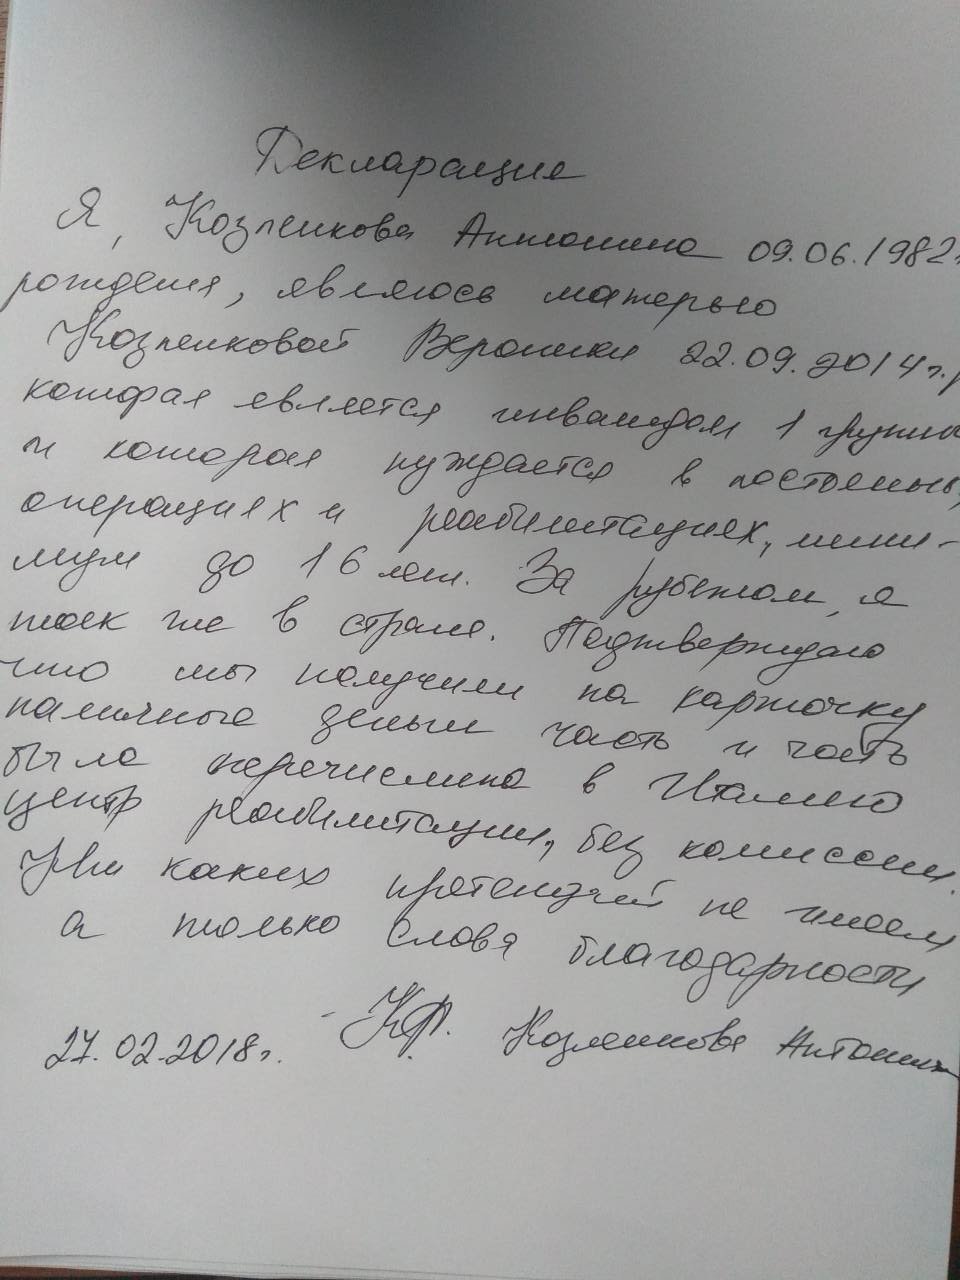 Декларация
Я, Козленкова Антонина 09.06.1982г.
рождения, являюсь матерью
Козленковой Вероники 22.09.2014г.р
которая является инвалидом 1 группы
и которая нуждается в постоянных
операциях и реабилитациях, мини-
мум до 16 лет. За рубежом, а
так же в стране. Подтверждаю
что мы получили на карточку
наличные деньги часть и часть
была перечислена в Италию
центр реабилитации, без комиссии.
Ни каких претензий не имеем
а только слова благодарности
27.02.2018г. Козленкова Антонина